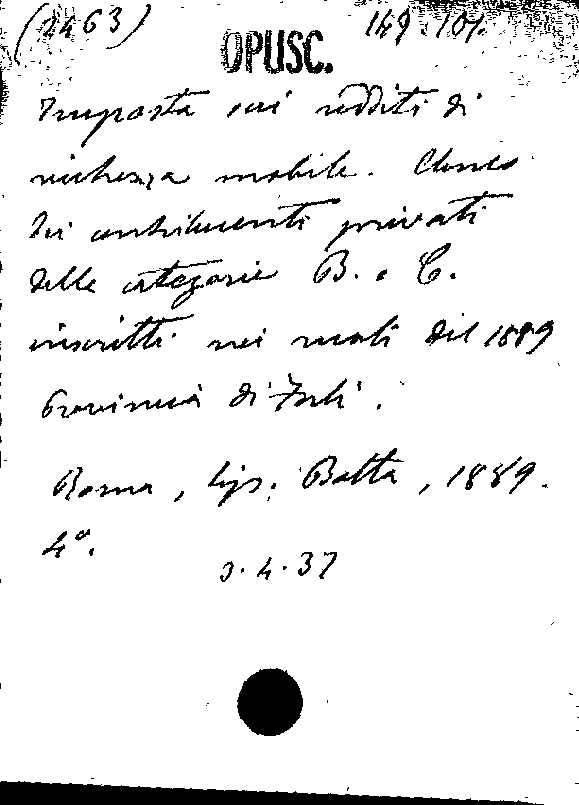 (2463) OPUSC. 149.101.
Imposta sui redditi di
richezza mobile. Elenco
dei contribuenti privati
delle categorie B. e C.
inscritti nei ruoli del 1889
Provincia di Forlì.
Roma, tip. Botta, 1889.
4°.
3.4.37